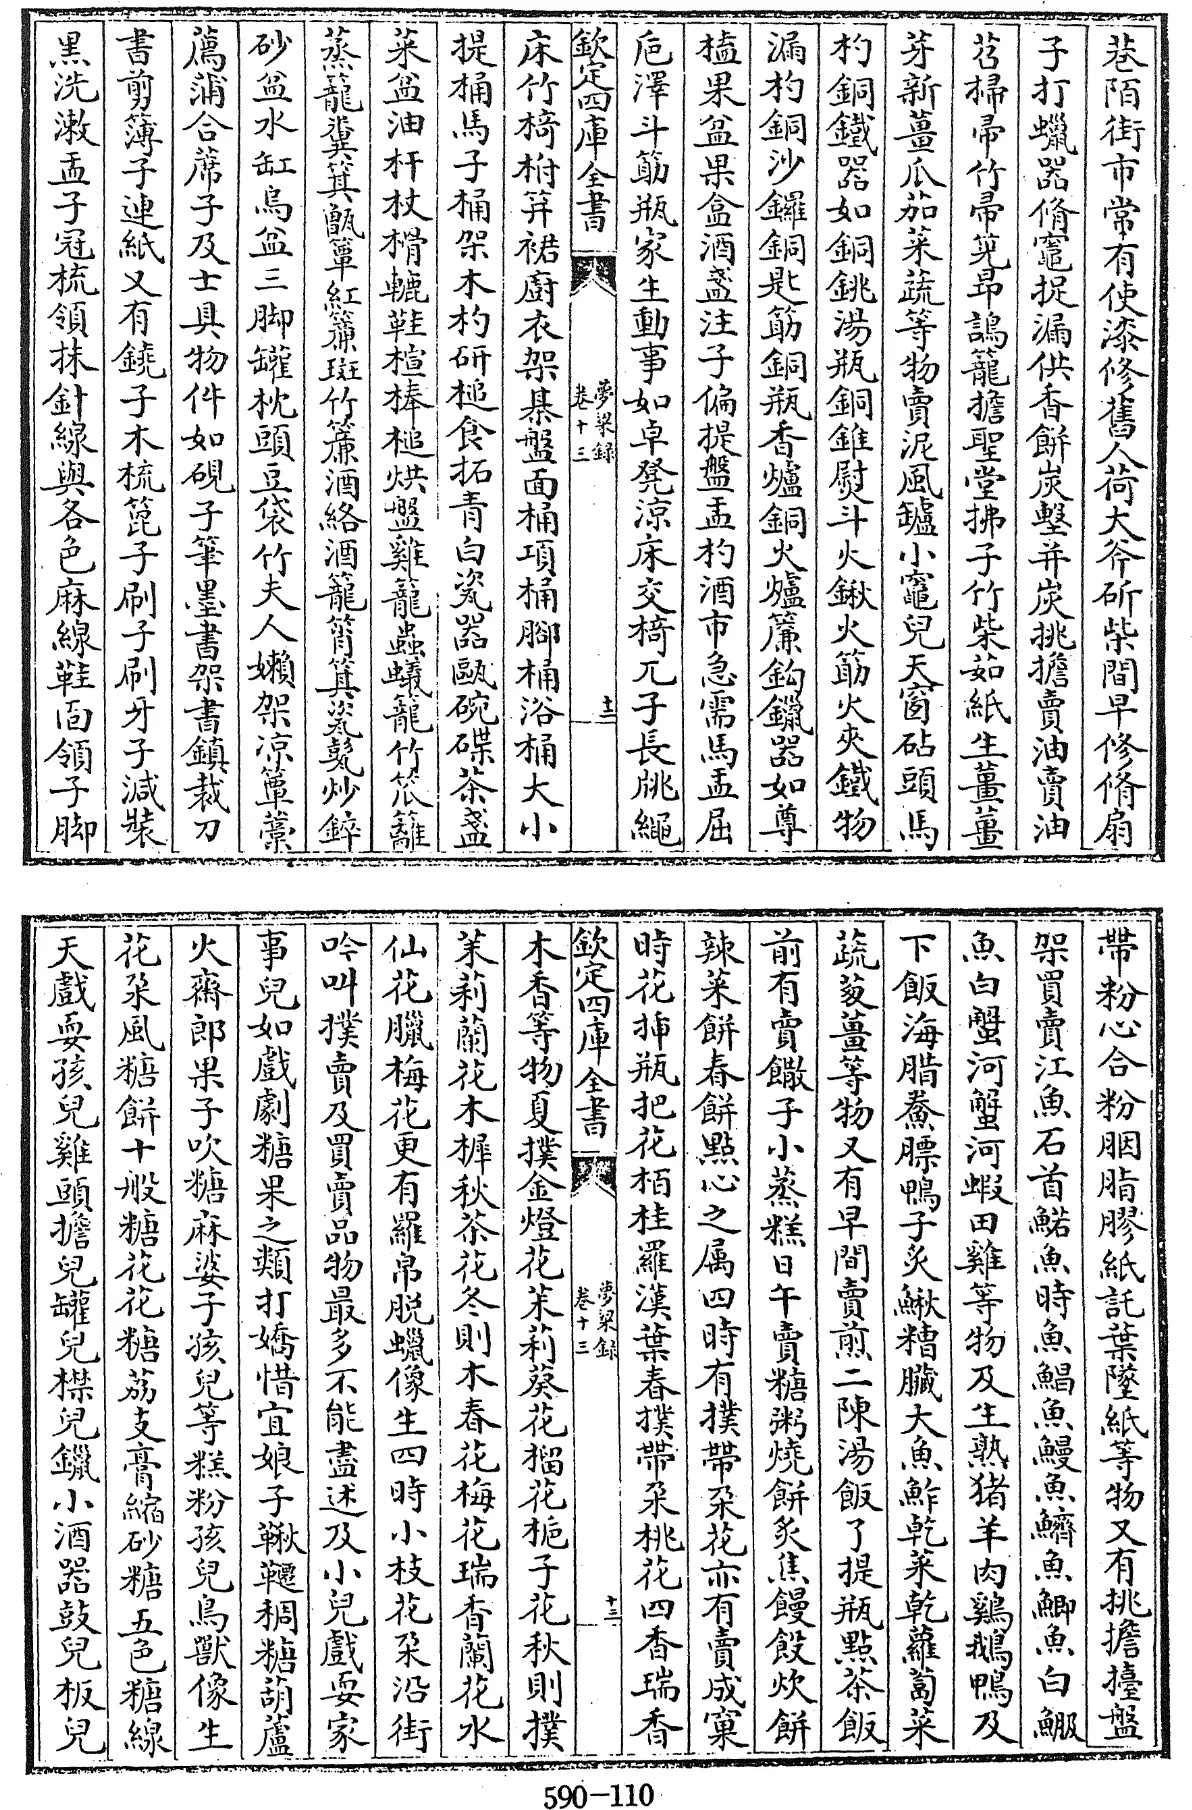 巷陌街市常有使漆修舊人荷大斧斫柴間早修脩扇
子打蠟器脩竈捉漏供香餅炭墼并炭挑擔賣油賣油
苕掃帚竹帚筅帚鵠籠擔聖堂拂子竹柴茹紙生薑薑
芽新薑瓜茄菜蔬等物賣泥風罏小竈兒天窗砧頭馬
杓銅鐵器如銅銚湯瓶銅錐熨斗火鍬火筯火夾鐵物
漏杓銅沙鑼銅匙筯銅瓶香爐銅火爐簾鈎鑞器如尊
榼果盆果盒酒盞注子偏提盤盂杓酒市急需馬盂屈
巵澤斗筯瓶家生動事如卓凳涼床交椅兀子長脁繩
欽定四庫全書
夢粱録
卷十三
十二
床竹椅柎筓裙廚衣架棊盤面桶項桶腳桶浴桶大小
提桶馬子桶架木杓研槌食拓青白瓷器甌碗碟茶盞
菜盆油杆杖榾轆鞋楦棒槌烘盤雞籠蟲蟻籠竹笊籬
蒸籠糞箕甑簞紅簾斑竹簾酒絡酒籠筲箕瓷甏炒錊
砂盆水缸烏盆三脚罐枕頭豆袋竹夫人嬾架凉簟藁
薦蒲合蓆子及士具物件如硯子筆墨書架書鎮裁刀
書剪簿子連紙又有鐃子木梳篦子刷子刷牙子減裝
黑洗漱盂子冠梳領抹針線與各色麻線鞋面領子脚
帶粉心合粉胭脂膠紙託葉墜紙等物又有挑擔擡盤
架買賣江魚石首鰙魚時魚鯧魚鰻魚鱭魚鯽魚白鰕
魚白蟹河蟹河蝦田雞等物及生熟猪羊肉鷄鵝鴨及
下飯海腊鯗膘鴨子炙鰍糟臟大魚鮓乾菜乾蘿蔔菜
蔬葱薑等物又有早間賣煎二陳湯飯了提瓶點茶飯
前有賣饊子小蒸糕日午賣糖粥燒餅炙焦饅餿炊餅
辣菜餅春餅點心之属四時有撲帶朶花亦有賣成窠
時花揷瓶把花栢桂羅漢葉春撲帶朶桃花四香瑞香
欽定四庫全書
夢粱録
卷十三
十三
木香等物夏撲金燈花茉莉葵花榴花梔子花秋則撲
茉莉蘭花木樨秋茶花冬則木春花梅花瑞香蘭花水
仙花臘梅花更有羅帛脱蠟像生四時小枝花朶沿街
吟叫撲賣及買賣品物最多不能盡述及小兒戲耍家
事兒如戲劇糖果之類打嬌惜宜娘子鞦韆稠糖葫蘆
火齋郎果子吹糖麻婆子孩兒等糕粉孩兒鳥獸像生
花朶風糖餅十般糖花花糖荔支膏縮砂糖五色糖線
天戲耍孩兒雞頭擔兒罐兒楪兒鑞小酒器鼓兒板兒
590-110